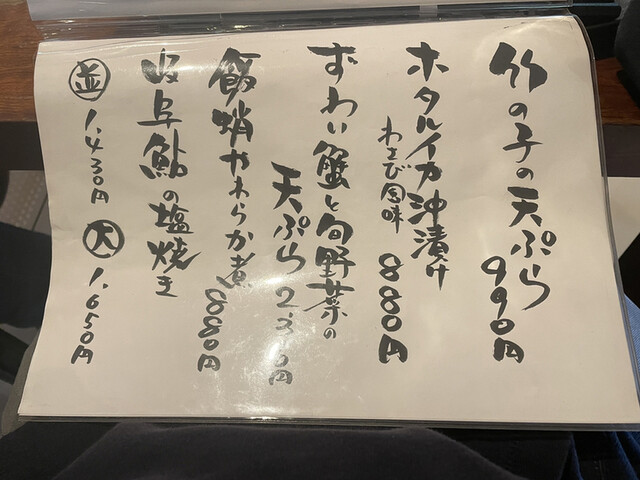 竹の子の天ぷら 990円
ホタルイカ沖漬け
わさび風味 880円
ずわい蟹と旬野菜の
天ぷら
飯蛸やわらか煮 880円
岐阜鮎の塩焼き
並 1.430円 大 1.650円